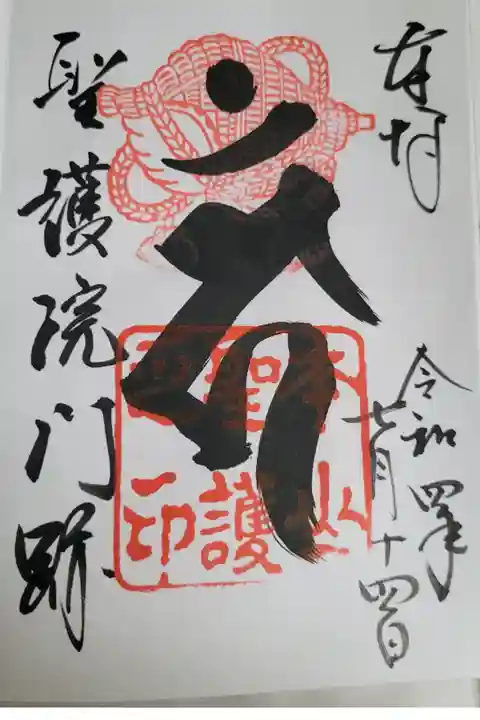 奉拝
令和四年
七月十四日
本山
聖護
印
聖護院門跡